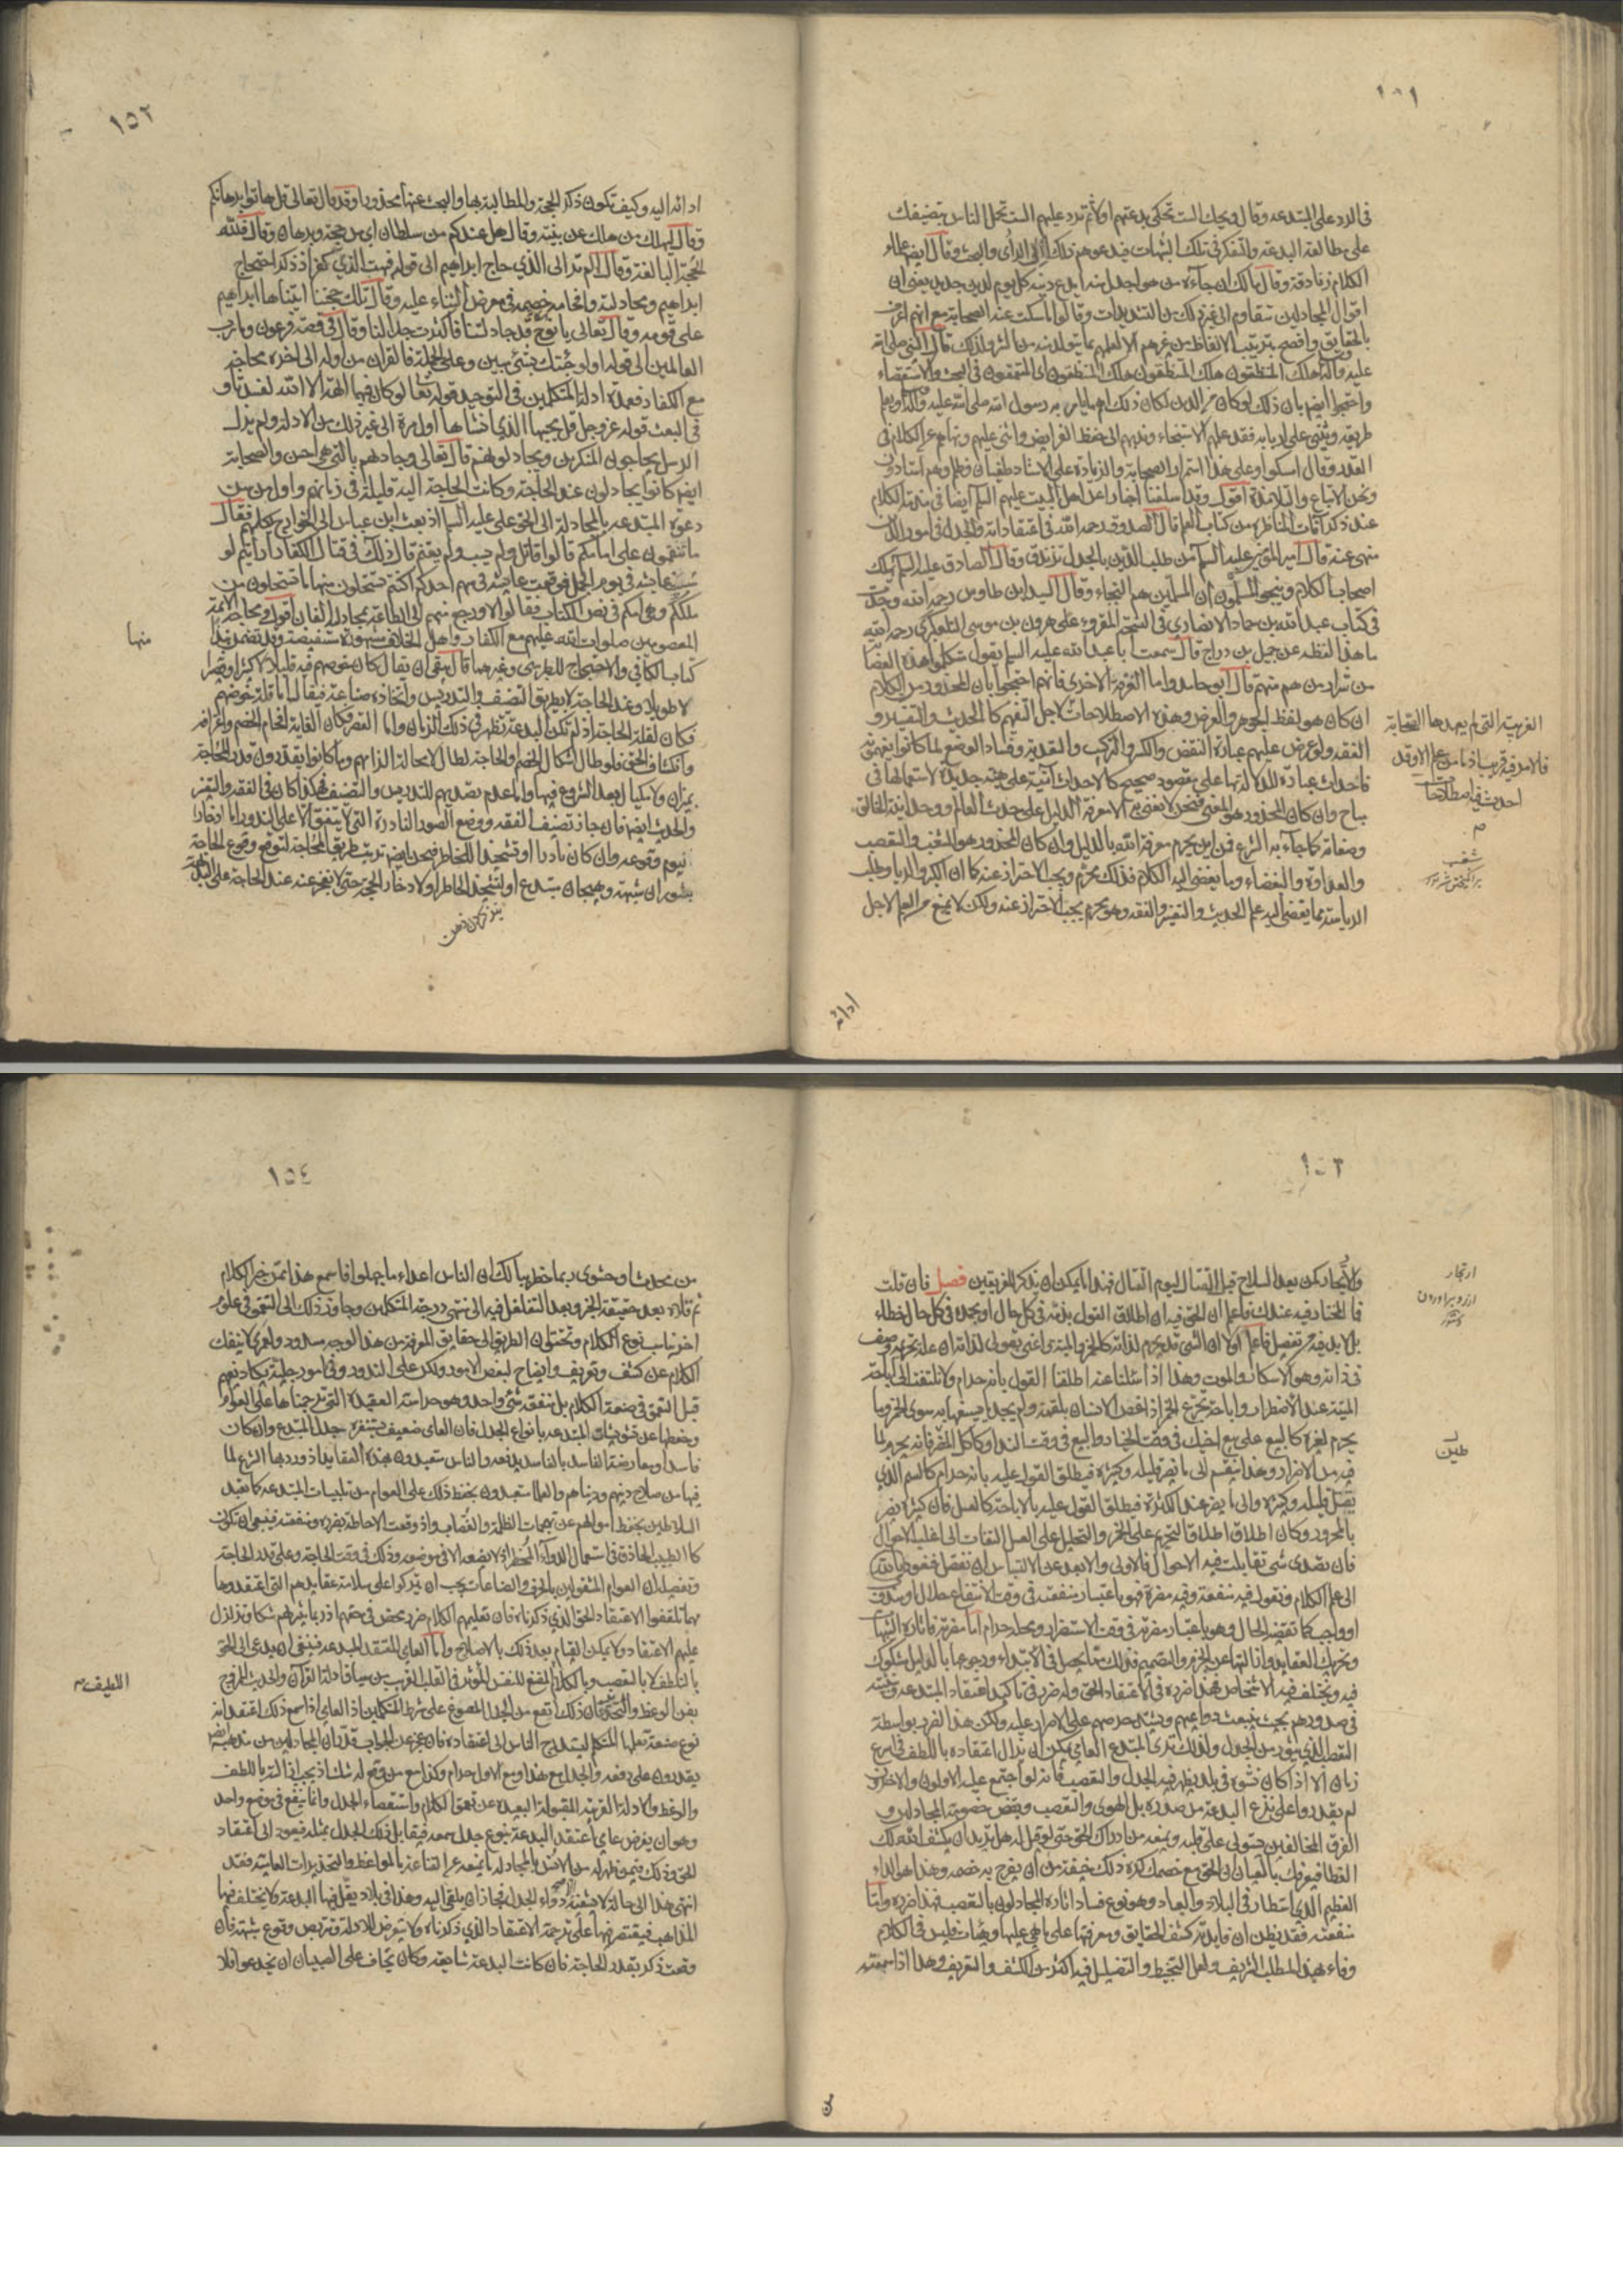 ١٥١
في الرد على المبتدعه وقال ويحك الست تحكي بدعتهم اولا ثم ترد عليهم الست تحمل الناس بتصنيفك
على مطالعه البدعه والتفكر في تلك الشبهات فيدعوهم ذلك الى الرأي والبحث وقال ايضا علماء
الكلام زنادقة وقال مالك ان جاءه من هو اجدل منه ايدع دينه كل يوم لدين جديد يعني ان
اقوال المجادلين تتقاوم الى غير ذلك من التشديدات وقالوا ما سكت عنه الصحابة مع انهم اعرف
بالحقايق وافصح بترتيب الالفاظ من غيرهم الا لعلمهم بما يتولد منه من الشر ولذلك قال النبي صلى الله
عليه وآله هلك المتنطعون هلك المتنطعون هلك المتنطعون اي المتعمقون في البحث والاستقصاء
واحتجوا ايضا بان ذلك لو كان من الدين لكان ذلك اهم ما يامر به رسول الله صلى الله عليه وآله ويعلم
طريقه ويثني على اربابه فقد علمهم الاستنجاء وندبهم الى حفظ الفرايض واثنى عليهم ونهاهم عن الكلام في
القدر وقال امسكوا وعلى هذا استمر الصحابة والزيادة على الاستاد طغيان وظلم وهم استادون
ونحن الاتباع والتلامذة اقول وقد اسلفنا اخبارا عن اهل البيت عليهم السلم ايضا في مذمة الكلام
عند ذكر آفات المناظره من كتاب العلم قال الصدوق رحمه الله في اعتقاداته والجدل في امور الدين
منهي عنه قال امير المؤمنين عليه السلم من طلب الدين بالجدل تزندق وقال الصادق عليه السلم يهلك
اصحاب الكلام وينجو المسلمون ان المسلمين هم النجباء وقال السيد ابن طاوس رحمه الله وجدت
في كتاب عبد الله بن حماد الانصاري في النسخة المقروءه على هرون بن موسى التلعكبري رحمه الله
ما هذا لفظه عن جميل بن دراج قال سمعت ابا عبد الله عليه السلم يقول متكلموا هذه العصابة
من شرار من هم منهم قال ابو حامد واما الفرقة الاخرى فانهم احتجوا بان المحذور من الكلام
ان كان هو لفظ الجوهر والعرض وهذه الاصطلاحات لاجل التفهيم كالحديث والتفسير و
الفقه ولو عرض عليهم عبارة النقض والكسر والتركيب والتعدية وفساد الوضع لما كانوا يفهمونه
فاحداث عبارة للدلالة بها على مقصود صحيح كاحداث آنية على هيئة جديدة لاستعمالها في
مباح وان كان المحذور هو المعنى فنحن لا نعني به الا معرفة الدليل على حدث العالم ووحدانية الخالق
وصفاته كما جاء به الشرع فمن اين يحرم معرفة الله بالدليل وان كان المحذور هو الشغب والتعصب
والعداوة والبغضاء وما يفضي اليه الكلام فذلك محرم ويجب الاحتراز عنه كما ان الكبر والرياء وطلب
الرياسة مما يفضي اليه علم الحديث والتفسير والفقه وهو محرم يجب الاحتراز عنه ولكن لا يمنع من العلم لاجل
الغريبة التي لم يعهدها الصحابة
فالامر فيه قريب اذ ما من علم الا وقد
احدث فيه اصطلاحات
م
شغب
ادائه
١٥٢
ادائه اليه وكيف تكون ذكر الحجة والمطالبة بها والبحث عنها محذورا وقد قال تعالى قل هاتوا برهانكم
وقال ليهلك من هلك عن بينة وقال هل عندكم من سلطان اي من حجة وبرهان وقال فلله
الحجة البالغة وقال الم تر الى الذي حاج ابراهيم الى قوله فبهت الذي كفر اذ ذكر احتجاج
ابراهيم ومجادلته وافحامه خصمه في معرض الثناء عليه وقال تلك حجتنا آتيناها ابراهيم
على قومه وقال تعالى يا نوح قد جادلتنا فاكثرت جدالنا وقال في قصة فرعون وما رب
العالمين الى قوله اولو جئتك بشئ مبين وعلى الجملة فالقرآن من اوله الى اخره محاجة
مع الكفار فعمدة ادلة المتكلمين في التوحيد قوله تعالى لو كان فيهما الهة الا الله لفسدتا و
في البعث قوله عز وجل قل يحييها الذي انشاها اول مرة الى غير ذلك من الادلة ولم يزل
الرسل يحاجون المنكرين ويجادلونهم قال تعالى وجادلهم بالتي هي احسن والصحابة
ايضا كانوا يجادلون عند الحاجة وكانت الحاجة اليه قليلة في زمانهم واول من سن
دعوة المبتدعه بالمجادلة الى الحق علي عليه السلم اذ بعث ابن عباس الى الخوارج يكلمهم فقال
ما تنقمون على امامكم قالوا قاتل ولم يسب ولم يغنم قال ذلك في قتال الكفار ارأيتم لو
سبيت عايشه في يوم الجمل فوقعت عايشه في سهم احدكم اكنتم تستحلون منها ما تستحلون من
ملككم وهي امكم في نص الكتاب فقالوا لا ورجع منهم الى الطاعة بمجادلته الفان اقول ومحاجة الائمة
المعصومين صلوات الله عليهم مع الكفار واهل الخلاف مشهورة مستفيضة وقد تضمن نبذا
كتاب الكافي والاحتجاج للطبرسي وغيرهما قال بقي ان يقال كان خوضهم فيه قليلا لا كثيرا وقصيرا
لا طويلا وعند الحاجة لا بطريق التصنيف والتدريس واتخاذه صناعة فيقال اما قلة خوضهم
فكان لقلة الحاجة اذ لم تكن البدعة تظهر في ذلك الزمان واما القصر فكان الغاية افحام الخصم واعترافه
وانكشاف الحق فلو طال اشكال الخصم والحاجة لطال لا محالة الزامهم وما كانوا يقدرون قدر الحاجة
بميزان ولا مكيال بعد الشروع فيها واما عدم تصديهم للتدريس والتصنيف فهكذا كان في الفقه والتفسير
والحديث ايضا فان جاز تصنيف الفقه ووضع الصور النادرة التي لا يتفق الا على الندور اما ادخارا
ليوم وقوعه وان كان نادرا او تشحيذا للخاطر فنحن ايضا نرتب طريق المحاجة لتوقع وقوع الحاجة
بثوران شبهة وهيجان مبتدع او لتشحيذ الخاطر او لادخار الحجة حتى لا يعجز عنه عند الحاجة على البديهة
منها
تيز كردن ذهن
١٥٣
والارتجال كمن يعد السلاح قبل القتال ليوم القتال فهذا ما يمكن ان يذكر للفريقين فصل فان قلت
فما المختار فيه عندك فاعلم ان الحق فيه ان اطلاق القول بذمه في كل حال او بحمده في كل حال خطاء
بل لا بد فيه من تفصيل فاعلم اولا ان الشئ قد يحرم لذاته كالخمر والميتة واعني بقولي لذاته ان علة تحريمه وصف
في ذاته وهو الاسكار والموت وهذا اذا سئلنا عنه اطلقنا القول بانه حرام ولا نلتفت الى اباحة
الميتة عند الاضطرار واباحة تجرع الخمر اذا غص الانسان بلقمة ولم يجد ما يسيغها به سوى الخمر وما
يحرم لغيره كالبيع على بيع اخيك في وقت الخيار والبيع في وقت النداء وكاكل الطين فانه يحرم لما
فيه من الاضرار وهذا ينقسم الى ما يضر قليله وكثيره فيطلق القول عليه بانه حرام كالسم الذي
يقتل قليله وكثيره والى ما يضر عند الكثرة فيطلق القول عليه بالاباحة كالعسل فان كثيره يضر
بالمحرور وكان اطلاق التحريم على الخمر والتحليل على العسل التفات الى اغلب الاحوال
فان تصدى شئ تقابلت فيه الاحوال فالاولى والابعد عن الالتباس ان تفصل فنعود
الى علم الكلام ونقول فيه منفعة وفيه مضرة فهو باعتبار منفعته في وقت الانتفاع حلال او مندوب
او واجب كما تقتضيه الحال وهو باعتبار مضرته في وقت الاستضرار ومحله حرام اما مضرته فاثارة الشبهات
وتحريك العقايد وازالتها عن الجزم والتصميم فذلك مما يحصل في الابتداء ورجوعها بالدليل مشكوك
فيه ويختلف فيه الاشخاص فهذا ضرره في الاعتقاد الحق وله ضرر في تاكيد اعتقاد المبتدعه وتثبيته
في صدورهم بحيث ينبعث دواعيهم ويشتد حرصهم على الاصرار عليه ولكن هذا الضرر بواسطة
التعصب الذي يثور من الجدل ولذلك ترى المبتدع العامي يمكن ان يزال اعتقاده باللطف في اسرع
زمان الا اذا كان نشوه في بلد يظهر فيه الجدل والتعصب فانه لو اجتمع عليه الاولون والاخرون
لم يقدروا على نزع البدعة من صدره بل الهوى والتعصب وبغض خصومة المجادلين و
الفرق المخالفين يستولي على قلبه ويمنعه من ادراك الحق حتى لو قيل له هل تريد ان يكشف الله لك
الغطا فيعرفك بالعيان ان الحق مع خصمك لكره ذلك خيفة من ان يفرح به خصمه وهذا هو الداء
العظيم الذي استطار في البلاد والعباد وهو نوع فساد اثاره المجادلون بالتعصب فهذا ضرره واما
منفعته فقد يظن ان فايدته كشف الحقايق ومعرفتها على ما هي عليها وهيهات فليس في الكلام
وفاء بهذا المطلب الشريف ولعل التخبيط والتضليل فيه اكثر من الكشف والتعريف وهذا اذا سمعته
ارتجار
طين
من
١٥٤
من محدث او حشوي ربما خطر ببالك ان الناس اعداء ما جهلوا فاسمع هذا ممن خبر الكلام
ثم قلاه بعد حقيقة الخبر وبعد التغلغل فيه الى منتهى درجة المتكلمين وجاوز ذلك الى التعمق في علوم
اخر تناسب نوع الكلام وتحقق ان الطريق الى حقايق المعرفة من هذا الوجه مسدود ولعمري لا ينفك
الكلام عن كشف وتعريف وايضاح لبعض الامور ولكن على الندور وفي امور جلية يكاد يفهم
قبل التعمق في صنعة الكلام بل منفعته شئ واحد وهو حراسة العقيدة التي ترجمناها على العوام
وحفظها عن تشويشات المبتدعه بانواع الجدل فان العامي ضعيف يستفزه جدل المبتدع وان كان
فاسدا ومعارضة الفاسد بالفاسد يدفعه والناس متعبدون بهذه العقايد اذ ورد بها الشرع لما
فيها من صلاح دينهم ودنياهم والعلما متعبدون بحفظ ذلك على العوام من تلبيسات المبتدعه كما تعبد
السلاطين بحفظ اموالهم عن تهجمات الظلمة والغصاب واذ وقعت الاحاطة بضرره ومنفعته فينبغي ان تكون
كالطبيب الحاذق في استعمال الدواء الخطر اذ لا يضعه الا في موضعه وذلك في وقت الحاجة وعلى قدر الحاجة
وتفصيله ان العوام المشغولين بالحرف والصناعات يجب ان يتركوا على سلامة عقايدهم التي اعتقدوها
مهما تلقفوا الاعتقاد الحق الذي ذكرناه فان تعليمهم الكلام ضرر محض في حقهم اذ ربما يثير لهم شكا ويزلزل
عليهم الاعتقاد ولا يمكن القيام بعد ذلك بالاصلاح واما العامي المعتقد للبدعه فينبغي ان يدعى الى الحق
بالتلطف لا بالتعصب وبالكلام المقنع للنفس المؤثر في القلب القريب من سياق ادلة القرآن والحديث الممزوج
بفن الوعظ والتحذير فان ذلك انفع من الجدل الموضوع على شرط المتكلمين اذ العامي اذا سمع ذلك اعتقد انه
نوع صنعة تعلمها المتكلم ليستدرج الناس الى اعتقاده فان عجز عن الجواب قدر ان المجادلين من مذهبه ايضا
يقدرون على دفعه والجدل مع هذا ومع الاول حرام وكذا مع من وقع له شك اذ يجب ازالته باللطف
والوعظ والادلة القريبه المقبولة البعيده عن تعمق الكلام واستقصاء الجدل وانما ينفع في موضع واحد
وهو ان يفرض عامي اعتقد البدعة بنوع جدل سمعه فيقابل ذلك الجدل بمثله فيعود الى اعتقاد
الحق وذلك فيمن ظهر له من الانس بالمجادلة ما يمنعه عن القناعة بالمواعظ والتحذيرات العامية فقد
انتهى هذا الى حالة لا يشفيه الا دواء الجدل فجاز ان يلقى اليه وهذا في بلاد يقل فيها البدعة ولا يختلف فيها
المذاهب فيقتصر فيها على ترجمة الاعتقاد الذي ذكرناه ولا يتعرض للادلة ويتربص وقوع شبهة فان
وقعت ذكر بقدر الحاجة فان كانت البدعة شايعة وكان يخاف على الصبيان ان يخدعوا فلا
اللطيف م